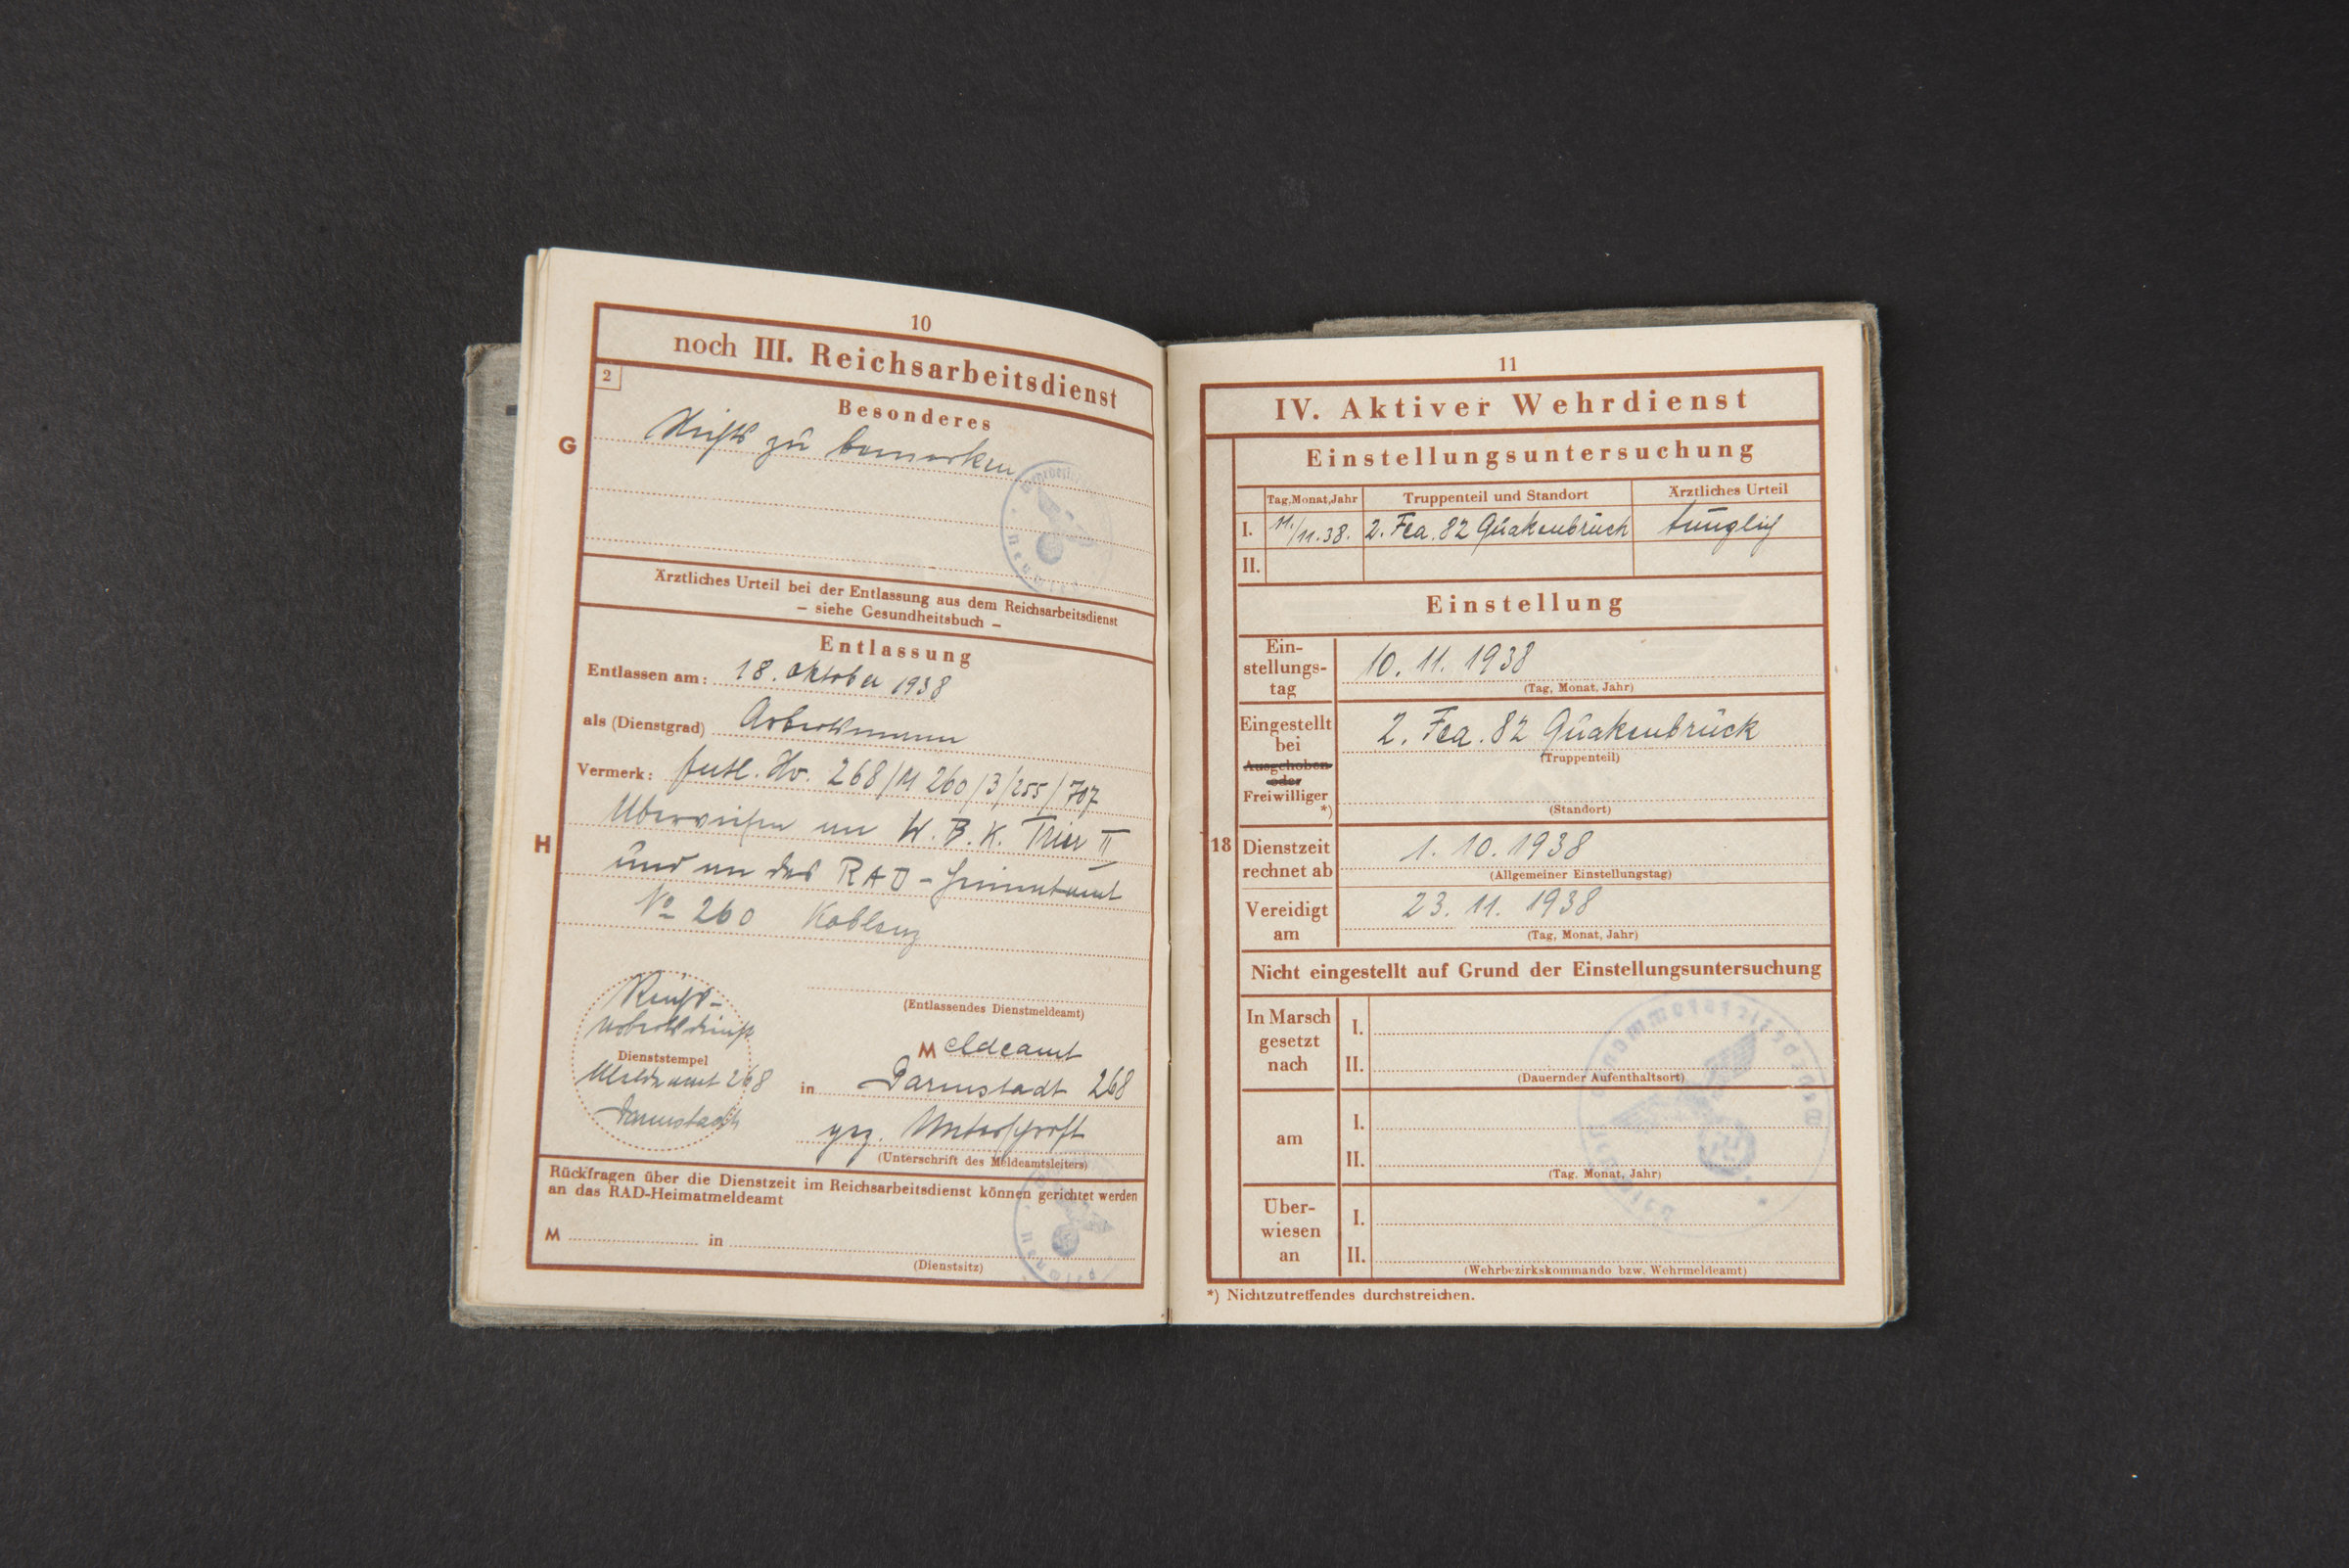 10
noch III. Reichsarbeitsdienst
2
Besonderes
G
Nichts zu bemerken
Ärztliches Urteil bei der Entlassung aus dem Reichsarbeitsdienst
– siehe Gesundheitsbuch –
Entlassung
Entlassen am: 18. Oktober 1938
als (Dienstgrad) Arbeitsmann
Vermerk: Entl. Nr. 268/M 260/3/255/707
Überwiesen an W.B.K. Trier II
H
und an das RAD-Heimatamt
No 260 Koblenz
(Entlassendes Dienstmeldeamt)
Reichs-
arbeitsdienst
Dienststempel
Meldeamt 268
Darmstadt
Meldeamt
in Darmstadt 268
gez. Unterschrift
(Unterschrift des Meldeamtsleiters)
Rückfragen über die Dienstzeit im Reichsarbeitsdienst können gerichtet werden
an das RAD-Heimatmeldeamt
M in
(Dienstsitz)
11
IV. Aktiver Wehrdienst
Einstellungsuntersuchung
Tag, Monat, Jahr Truppenteil und Standort Ärztliches Urteil
I. 11./11.38. 2. Fea. 82 Quakenbrück tauglich
II.
Einstellung
Ein-
stellungs-
tag
10. 11. 1938
(Tag, Monat, Jahr)
Eingestellt
bei
Ausgehoben
oder
Freiwilliger
*)
2. Fea. 82 Quakenbrück
(Truppenteil)
(Standort)
18
Dienstzeit
rechnet ab
1. 10. 1938
(Allgemeiner Einstellungstag)
Vereidigt
am
23. 11. 1938
(Tag, Monat, Jahr)
Nicht eingestellt auf Grund der Einstellungsuntersuchung
In Marsch
gesetzt
nach
I.
II.
(Dauernder Aufenthaltsort)
am
I.
II.
(Tag, Monat, Jahr)
Über-
wiesen
an
I.
II.
(Wehrbezirkskommando bzw. Wehrmeldeamt)
*) Nichtzutreffendes durchstreichen.